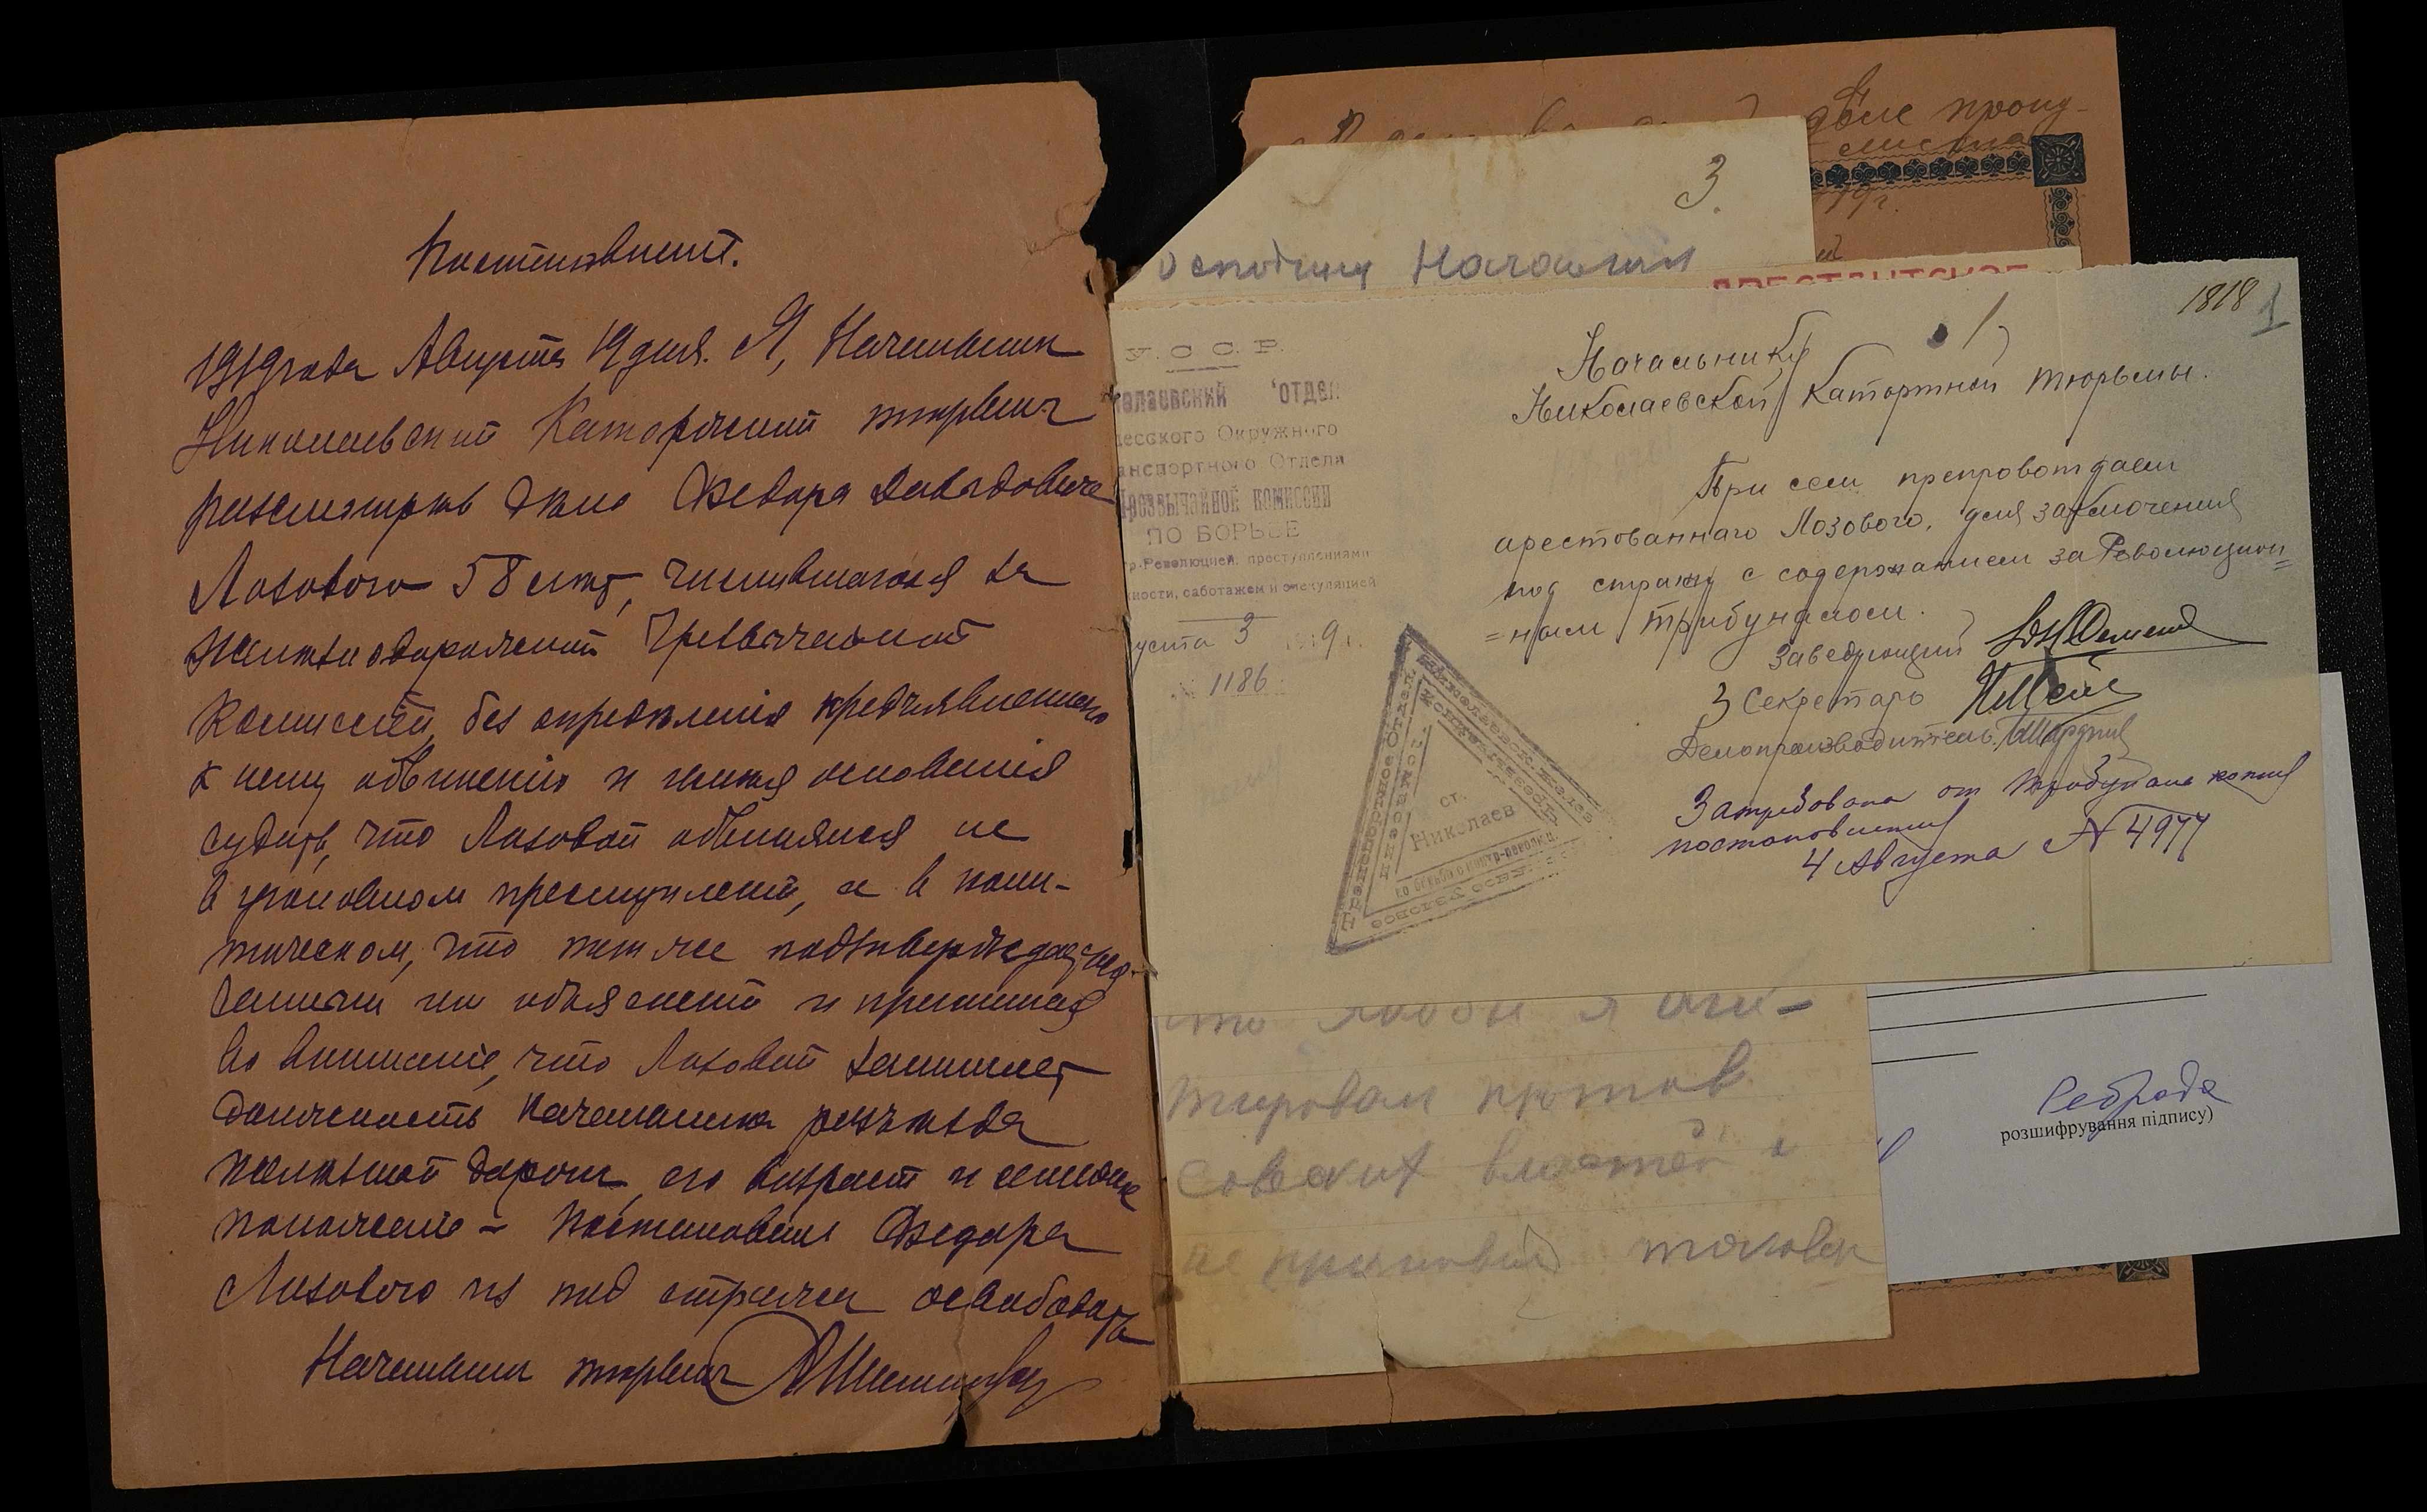 Постановленіе.
1919 года Августа 19 дня. Я, Начальник
Николаевской Каторжной тюрьмы
разсмотрев дело Федора Давидовича
Лозового 58 лет, числившагося за
Железнодорожной Чрезвычайной
Комиссией, без определенія предъявленнаго
к нему обвиненія и имея основанія
судить, что Лозовой обвинялся не
в уголовном преступленіи, а в поли-
тическом, что так же подтверждает
и принимая
во вниманіе, что Лозовой занимает
должность Начальника разъезда
железной дороги, его возраст и семейное
положеніе – Постановил Федора
Лозового из под стражи освободить
Начальник тюрьмы
деле прону-
листа
3
осподину Начальни
АРЕСТАНТСКОЕ
1818
1
У.С.С.Р.
олаевский отдел
десского Окружного
анспортного Отдела
Чрезвычайной комиссии
ПО БОРЬБЕ
тр-Революцией, преступлениями
ности, саботажем и спекуляцией
густа 3 1919 г.
№ 1186
Начальнику
Николаевской Каторжной тюрьмы.
При сем препровождаем
арестованнаго Лозового, для заключения
под стражу с содержанием за Революцион=
=ным Трибуналом.
Заведующий
З Секретарь
Делопроизводитель
Затребована от Трибунала копия
постановления
4 Августа № 4977
Транспортное Отдел.
ст.
Николаев
по борьбе с контр-револю.
что якобы я аги-
тировал против
Советских властей и
не признавал таковых
розшифрування підпису)